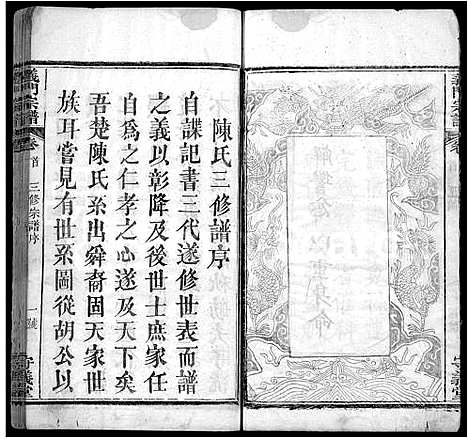 義門宗譜
陳氏三修譜序
自諜記書三代遂修世表而譜
之義以彰降及後世士庶家任
自為之仁孝之心遂及天下矣
吾楚陳氏系出舜裔固天家世
族耳嘗見有世系圖從胡公以
義門宗譜
卷首
三修宗譜序
一號
守義堂